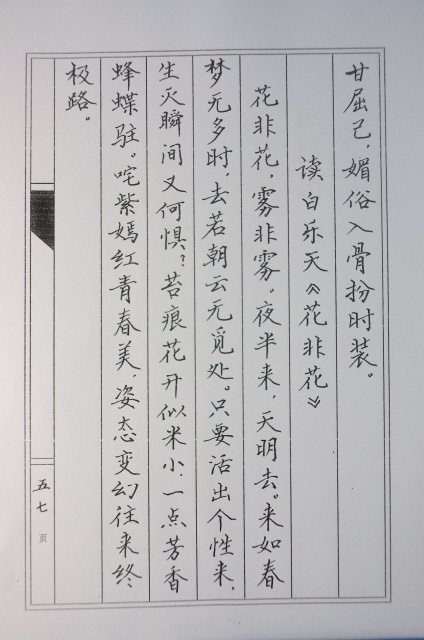 甘屈己，媚俗入骨扮时装。
读白乐天《花非花》
花非花，雾非雾。夜半来，天明去。来如春
梦无多时，去若朝云无觅处。只要活出个性来，
生灭瞬间又何惧？苔痕花开似米小，一点芳香
蜂蝶驻。咤紫嫣红青春美，姿态变幻往来终
极路。
五七页